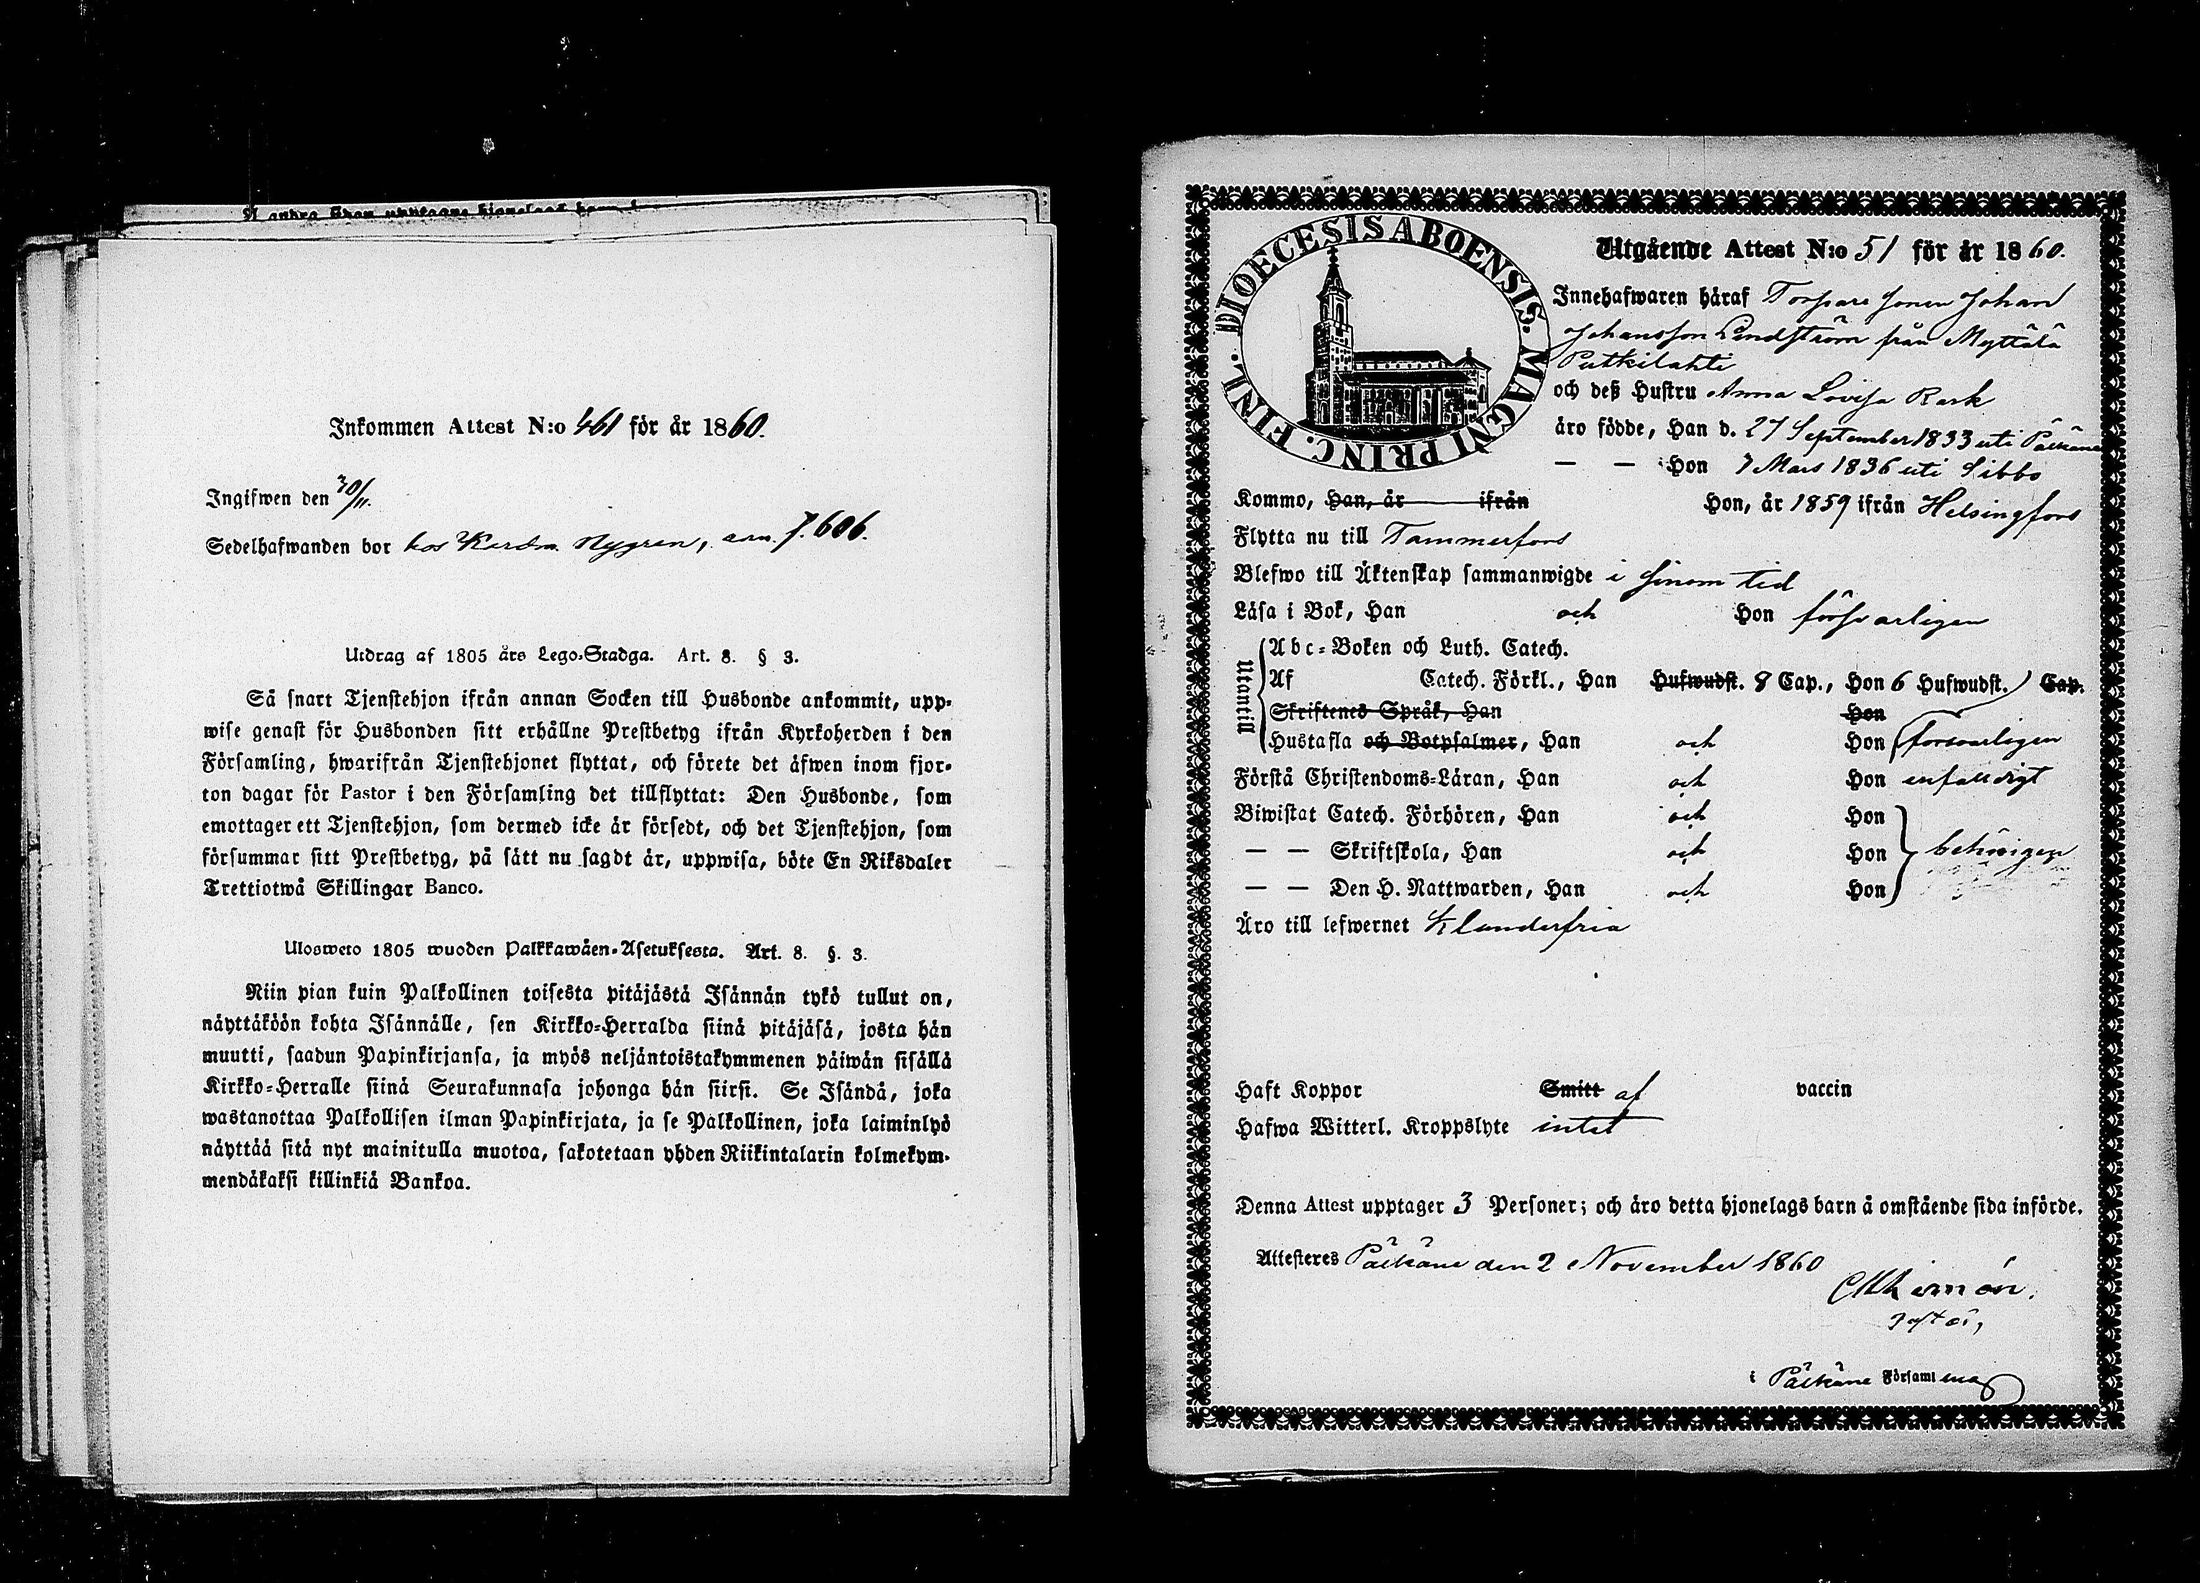 Inkommen Attest N:o 461 för år 1860.
Ingifwen den 30/11.
Sedelhafwanden bor hos Nygren, 606.
Utdrag af 1805 års Lego-Stadga. Art. 8. § 3.
Så snart Tjenstehjon ifrån annan Socken till Husbonde ankommit, upp-
wise genast för Husbonden sitt erhållne Prestbetyg ifrån Kyrkoherden i den
Församling, hwarifrån Tjenstehjonet flyttat, och förete det äfwen inom fjor-
ton dagar för Pastor i den Församling det tillflyttat: Den Husbonde, som
emottager ett Tjenstehjon, som dermed icke är försedt, och det Tjenstehjon, som
försummar sitt Prestbetyg, på sätt nu sagdt är, uppwisa, böte En Riksdaler
Trettiotwå Skillingar Banco.
Ulosweto 1805 wuoden Palkkawäen-Asetuksesta. Art. 8. §. 3.
Niin pian kuin Palkollinen toisesta pitäjästä Isännän tykö tullut on,
näyttäköön kohta Isännälle, sen Kirkko-Herralda siinä pitäjäsä, josta hän
muutti, saadun Papinkirjansa, ja myös neljäntoistakymmenen päiwän sisällä
Kirkko-Herralle siinä Seurakunnasa johonga hän siirsi. Se Isändä, joka
wastanottaa Palkollisen ilman Papinkirjata, ja se Palkollinen, joka laiminlyö
näyttää sitä nyt mainitulla muotoa, sakotetaan yhden Riikintalarin kolmekym-
mendäkaksi killinkiä Bankoa.
DIOECESIS ABOENSIS. MAGNI PRINC. FINL.
Utgående Attest N:o 51 för år 1860.
Innehafwaren häraf Torpare sonen Johan
Johansson Lindström från Myttälä
Putkilahti
och deß Hustru Anna Lovisa Rask
äro födde, Han d. 27 September 1833 uti Pälkäne
— — Hon 7 Mars 1836 uti Sibbo
Kommo, Han, år ifrån Hon, år 1859 ifrån Helsingfors
Flytta nu till Tammerfors
Blefwo till Äktenskap sammanwigde i sinom tid
Läsa i Bok, Han och Hon försvarligen
Utantill
Abc-Boken och Luth. Catech.
Af Catech. Förkl., Han Hufwudst. 8 Cap., Hon 6 Hufwudst. Cap.
Skriftenes Språk, Han Hon
Hustafla och Botpsalmer, Han och Hon försvarligen
Förstå Christendoms-Läran, Han och Hon enfaldigt
Biwistat Catech. Förhören, Han och Hon
— — Skriftskola, Han och Hon behörigen
— — Den H. Nattwarden, Han och Hon
Äro till lefwernet Klanderfria
Haft Koppor Smitt af vaccin
Hafwa Witterl. Kroppslyte intet
Denna Attest upptager 3 Personer; och äro detta hjonelags barn å omstående sida införde.
Attesteres Pälkäne den 2 November 1860
Pastor,
i Pälkäne Församling